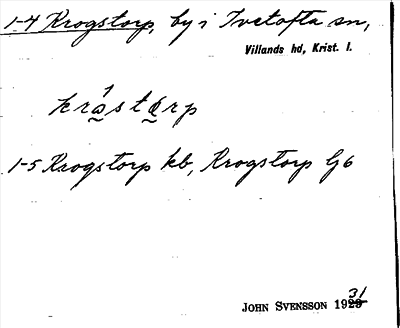 1-4 Krogstorp, by i Ivetofta sn,
Villands hd, Krist. l.
1-5 Krogstorp kb, Krogstorp Gb
JOHN SVENSSON 1931